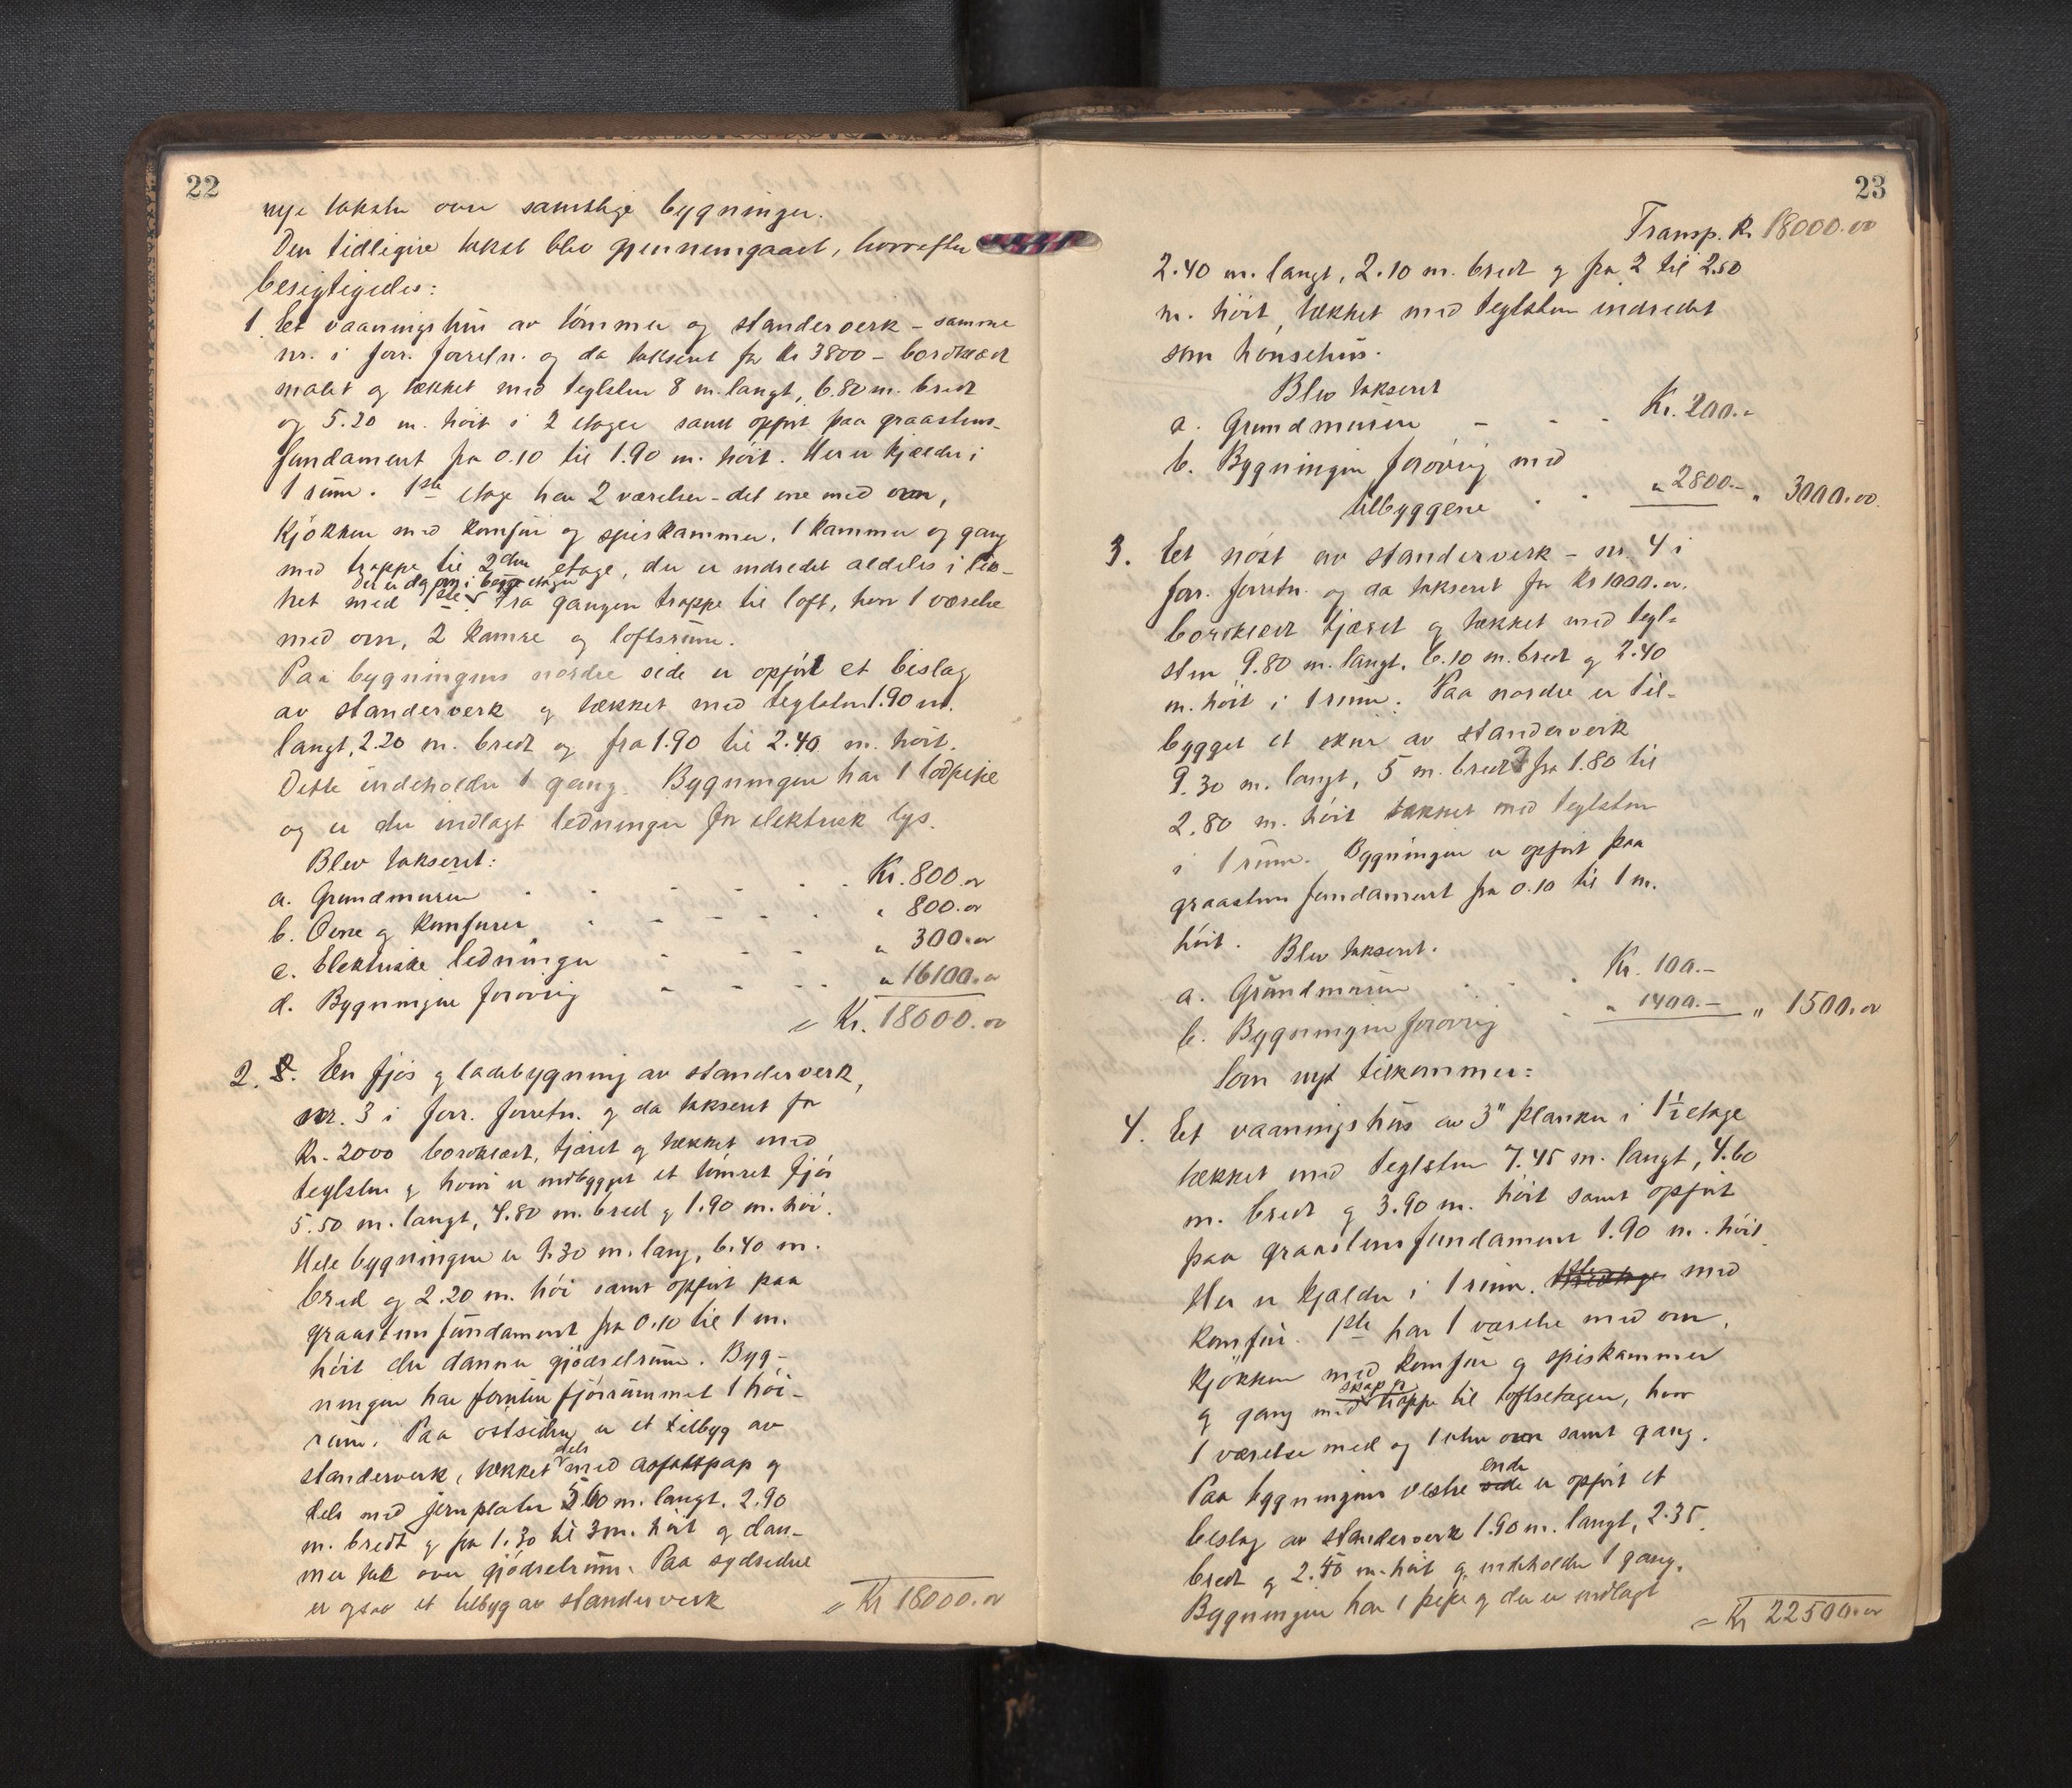 22
nye takster over samtlige bygninger.
Den tidligere takst blev gjennemgaaet, hvorefter
besigtigedes:
1. Et vaaningshus av tømmer og standerverk - samme
nr. i forr. forretn. og da taksert for Kr 3800 - bordklædt
malet og tækket med teglsten 8 m. langt, 6.80 m. bredt
og 5.20 m. høit i 2 etager samt opført paa graastens-
fundament fra 0.10 til 1.90 m. høit. Her er kjælder i
1 rum. 1ste etage har 2 værelser - det ene med ovn,
Kjøkken med komfur og spiskammer, 1 kammer og gang
med trappe til 2den etage, der er indredet aldeles i lik-
Det er dog ovn i begge etager
het med 1ste. Fra gangen trappe til loft, hvor 1 værelse
med ovn, 2 kamre og loftsrum.
Paa bygningens nordre side er opført et bislag
av standerverk og tækket med teglsten 1.90 m.
langt, 2.20 m. bredt og fra 1.90 til 2.40 m. høit.
Dette indeholder 1 gang. Bygningen har 1 lodpipe
og er der indlagt ledninger for elektrisk lys.
Blev taksert:
a. Grundmuren . . - - . . Kr. 800.00
b. Ovne og komfurer . - - - . " 800.00
c. Elektriske ledninger - - - " 300.00
d. Bygningen forøvrig - - - . " 16100.00
= Kr. 18000.00
2. En fjøs og ladebygning av standerverk,
nr. 3 i forr. forretn. og da taksert for
Kr. 2000 bordklædt, tjæret og tækket med
teglsten og hvori er indbygget et tømret fjøs
5.50 m. langt, 4.80 m. bred og 1.90 m. høi.
Hele bygningen er 9.30 m. lang, 6.40 m.
bred og 2.20 m. høi samt opført paa
graastensfundament fra 0.10 til 1 m.
høit der danner gjødselrum. Byg-
ningen har foruten fjøsrummet 1 høi-
rum. Paa østsiden er et tilbyg av
dels
standerverk, tækket med asfaltpap og
dels med jernplater 5.60 m. langt, 2.90
m. bredt og fra 1.30 til 3 m. høit og dan-
ner tak over gjødselrum. Paa sydsiden
er ogsaa et tilbyg av standerverk
= Kr 18000.00
23
Transp. Kr. 18000.00
2.40 m. langt, 2.10 m. bredt og fra 2 til 2.50
m. høit, tækket med teglsten indredet
som hønsehus.
Blev taksert
a. Grundmuren - - - Kr. 200.-
b. Bygningen forøvrig med
tilbyggene . . " 2800.- " 3000.00
3. Et nøst av standerverk - nr. 4 i
forr. forretn. og da taksert for Kr 1000.00.
bordklædt tjæret og tækket med tegl-
sten 9.80 m. langt, 6.10 m. bredt og 2.40
m. høit i 1 rum. Paa nordre er til-
bygget et skur av standerverk
9.30 m. langt, 5 m. bredt og fra 1.80 til
2.80 m. høit tækket med teglsten
i 1 rum. Bygningen er opført paa
graastens fundament fra 0.10 til 1 m.
høit. Blev taksert.
a. Grundmuren . . . Kr. 100.-
b. Bygningen forøvrig - " 1400.- " 1500.00
Som nyt tilkommer:
4. Et vaaningshus av 3" planker i 1½ etage
tækket med teglsten 7.45 m. langt, 4.60
m. bredt og 3.90 m. høit samt opført
paa graastensfundament 1.90 m. høit.
Her er kjælder i 1 rum. med
komfur. 1ste har 1 værelse med ovn,
kjøkken med komfur og spiskammer
skap og
og gang med trappe til loftsetagen, hvor
1 værelse med og 1 uten ovn samt gang.
ende
Paa bygningens vestre side er opført et
beslag av standerverk 1.90 m. langt, 2.35
bredt og 2.40 m. høit og indeholder 1 gang.
Bygningen har 1 pipe og der er indlagt
= Kr 22500.00